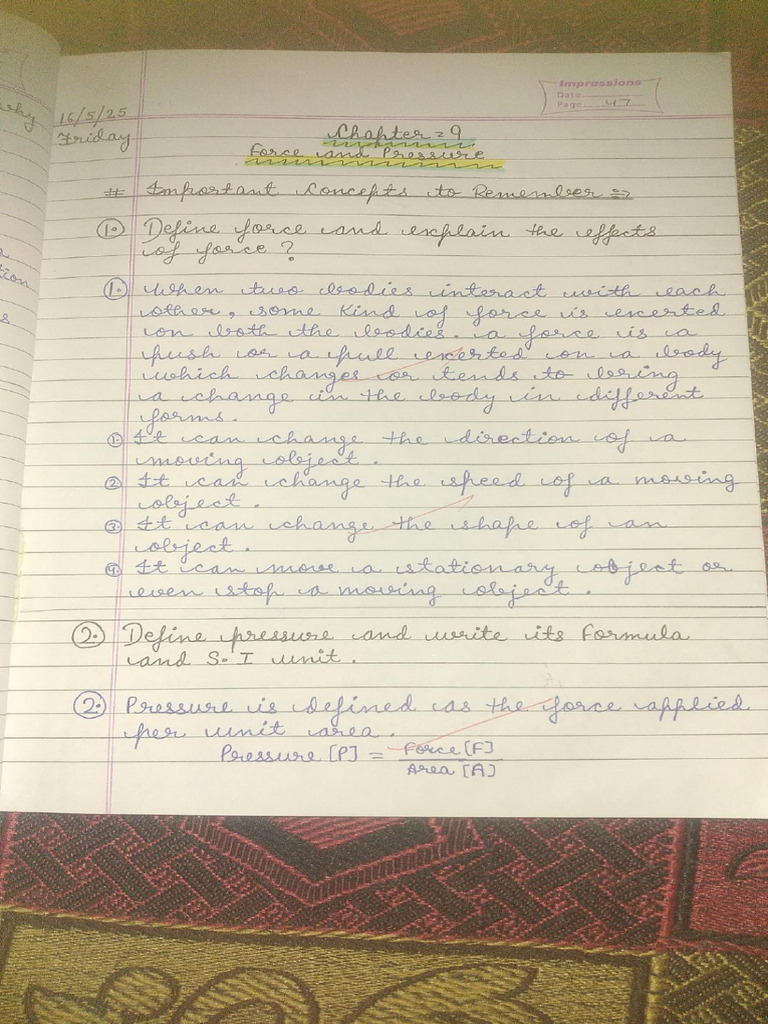 Impressions
Date
Page 47
16/5/25
Friday
Chapter = 9
Force and Pressure
# Important Concepts to Remember =>
1. Define force and explain the effects
of force ?
1. When two bodies interact with each
other, some kind of force is exerted
on both the bodies. a force is a
push or a pull exerted on a body
which changes or tends to bring
a change in the body in different
forms.
1. It can change the direction of a
moving object.
2. It can change the speed of a moving
object.
3. It can change the shape of an
object.
4. It can move a stationary object or
even stop a moving object.
2. Define pressure and write its Formula
and S. I unit.
2. Pressure is defined as the force applied
per unit area.
Pressure [P] = Force [F]
Area [A]